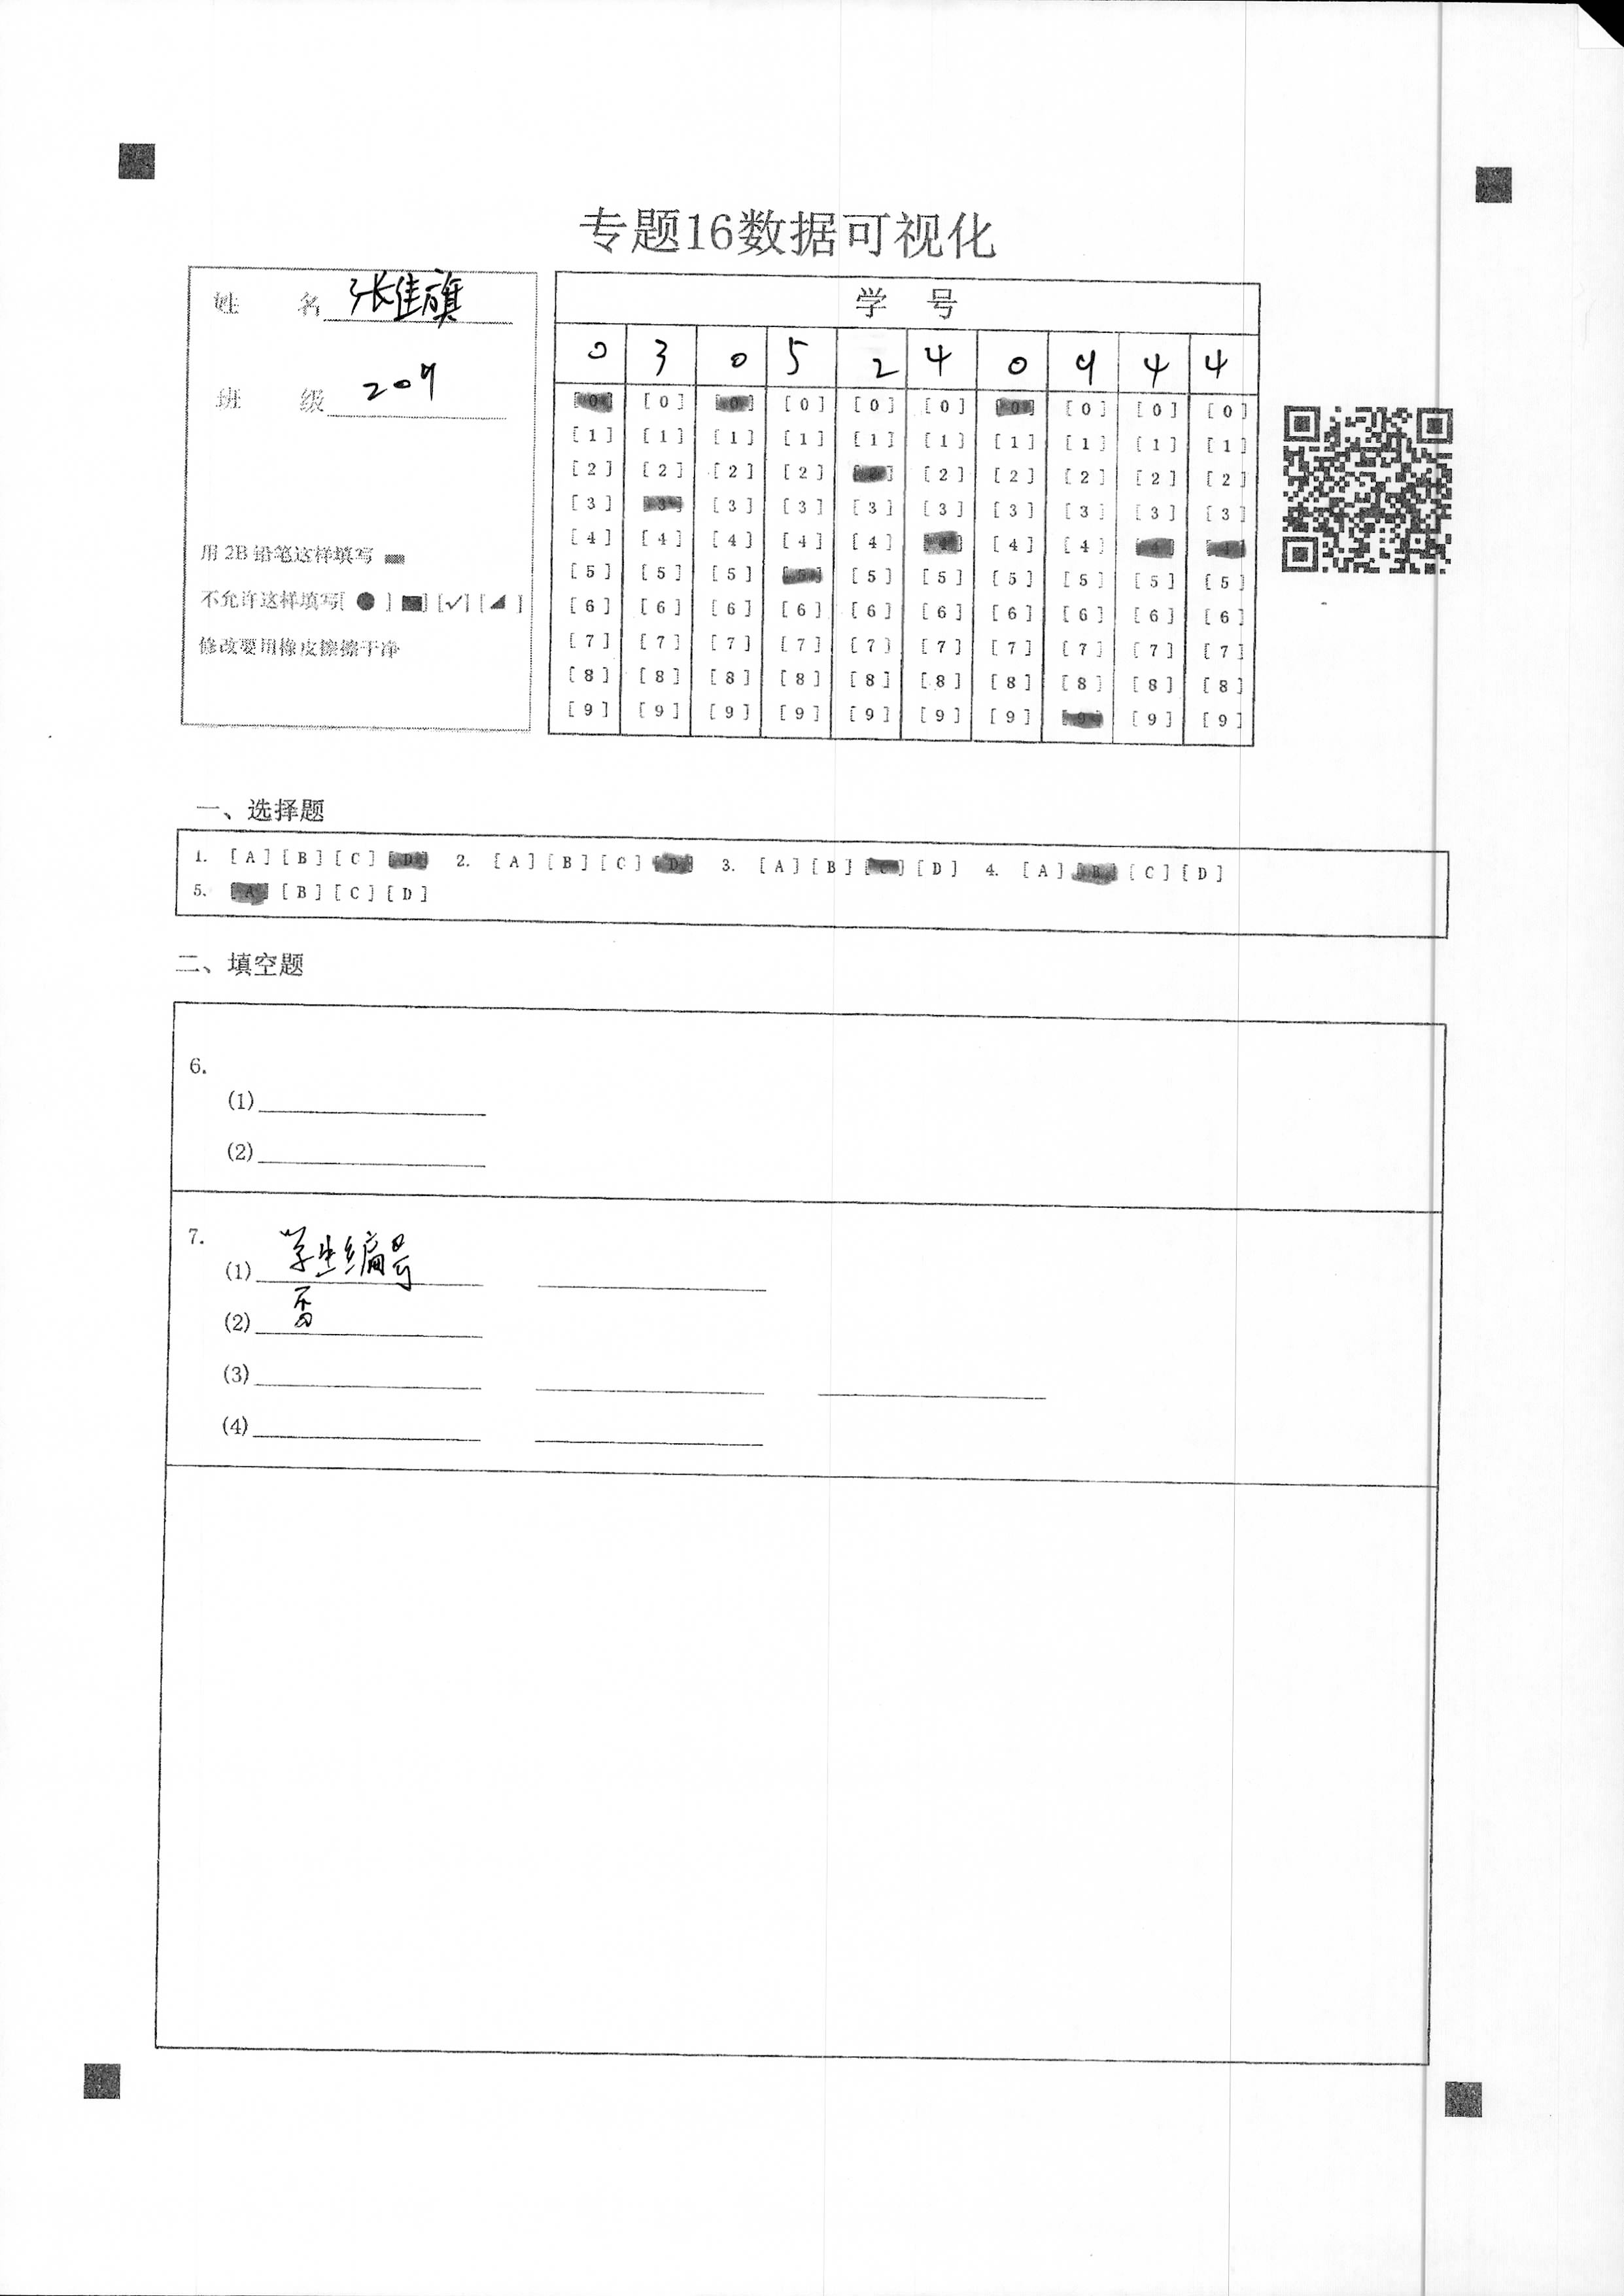 专题16数据可视化
姓 名 张佳旗
班 级 209
用 2B 铅笔这样填写
不允许这样填写[ ● ] ■] [✓] [◢ ]
修改要用橡皮擦擦干净
学 号
0 3 0 5 2 4 0 9 4 4
[0] [0] [0] [0] [0] [0] [0] [0] [0] [0]
[1] [1] [1] [1] [1] [1] [1] [1] [1] [1]
[2] [2] [2] [2] [2] [2] [2] [2] [2] [2]
[3] [3] [3] [3] [3] [3] [3] [3] [3] [3]
[4] [4] [4] [4] [4] [4] [4] [4] [4] [4]
[5] [5] [5] [5] [5] [5] [5] [5] [5] [5]
[6] [6] [6] [6] [6] [6] [6] [6] [6] [6]
[7] [7] [7] [7] [7] [7] [7] [7] [7] [7]
[8] [8] [8] [8] [8] [8] [8] [8] [8] [8]
[9] [9] [9] [9] [9] [9] [9] [9] [9] [9]
一、选择题
1. [A] [B] [C] [D] 2. [A] [B] [C] [D] 3. [A] [B] [C] [D] 4. [A] [B] [C] [D]
5. [A] [B] [C] [D]
二、填空题
6.
(1)
(2)
7.
(1) 学生编号
(2) 否
(3)
(4)